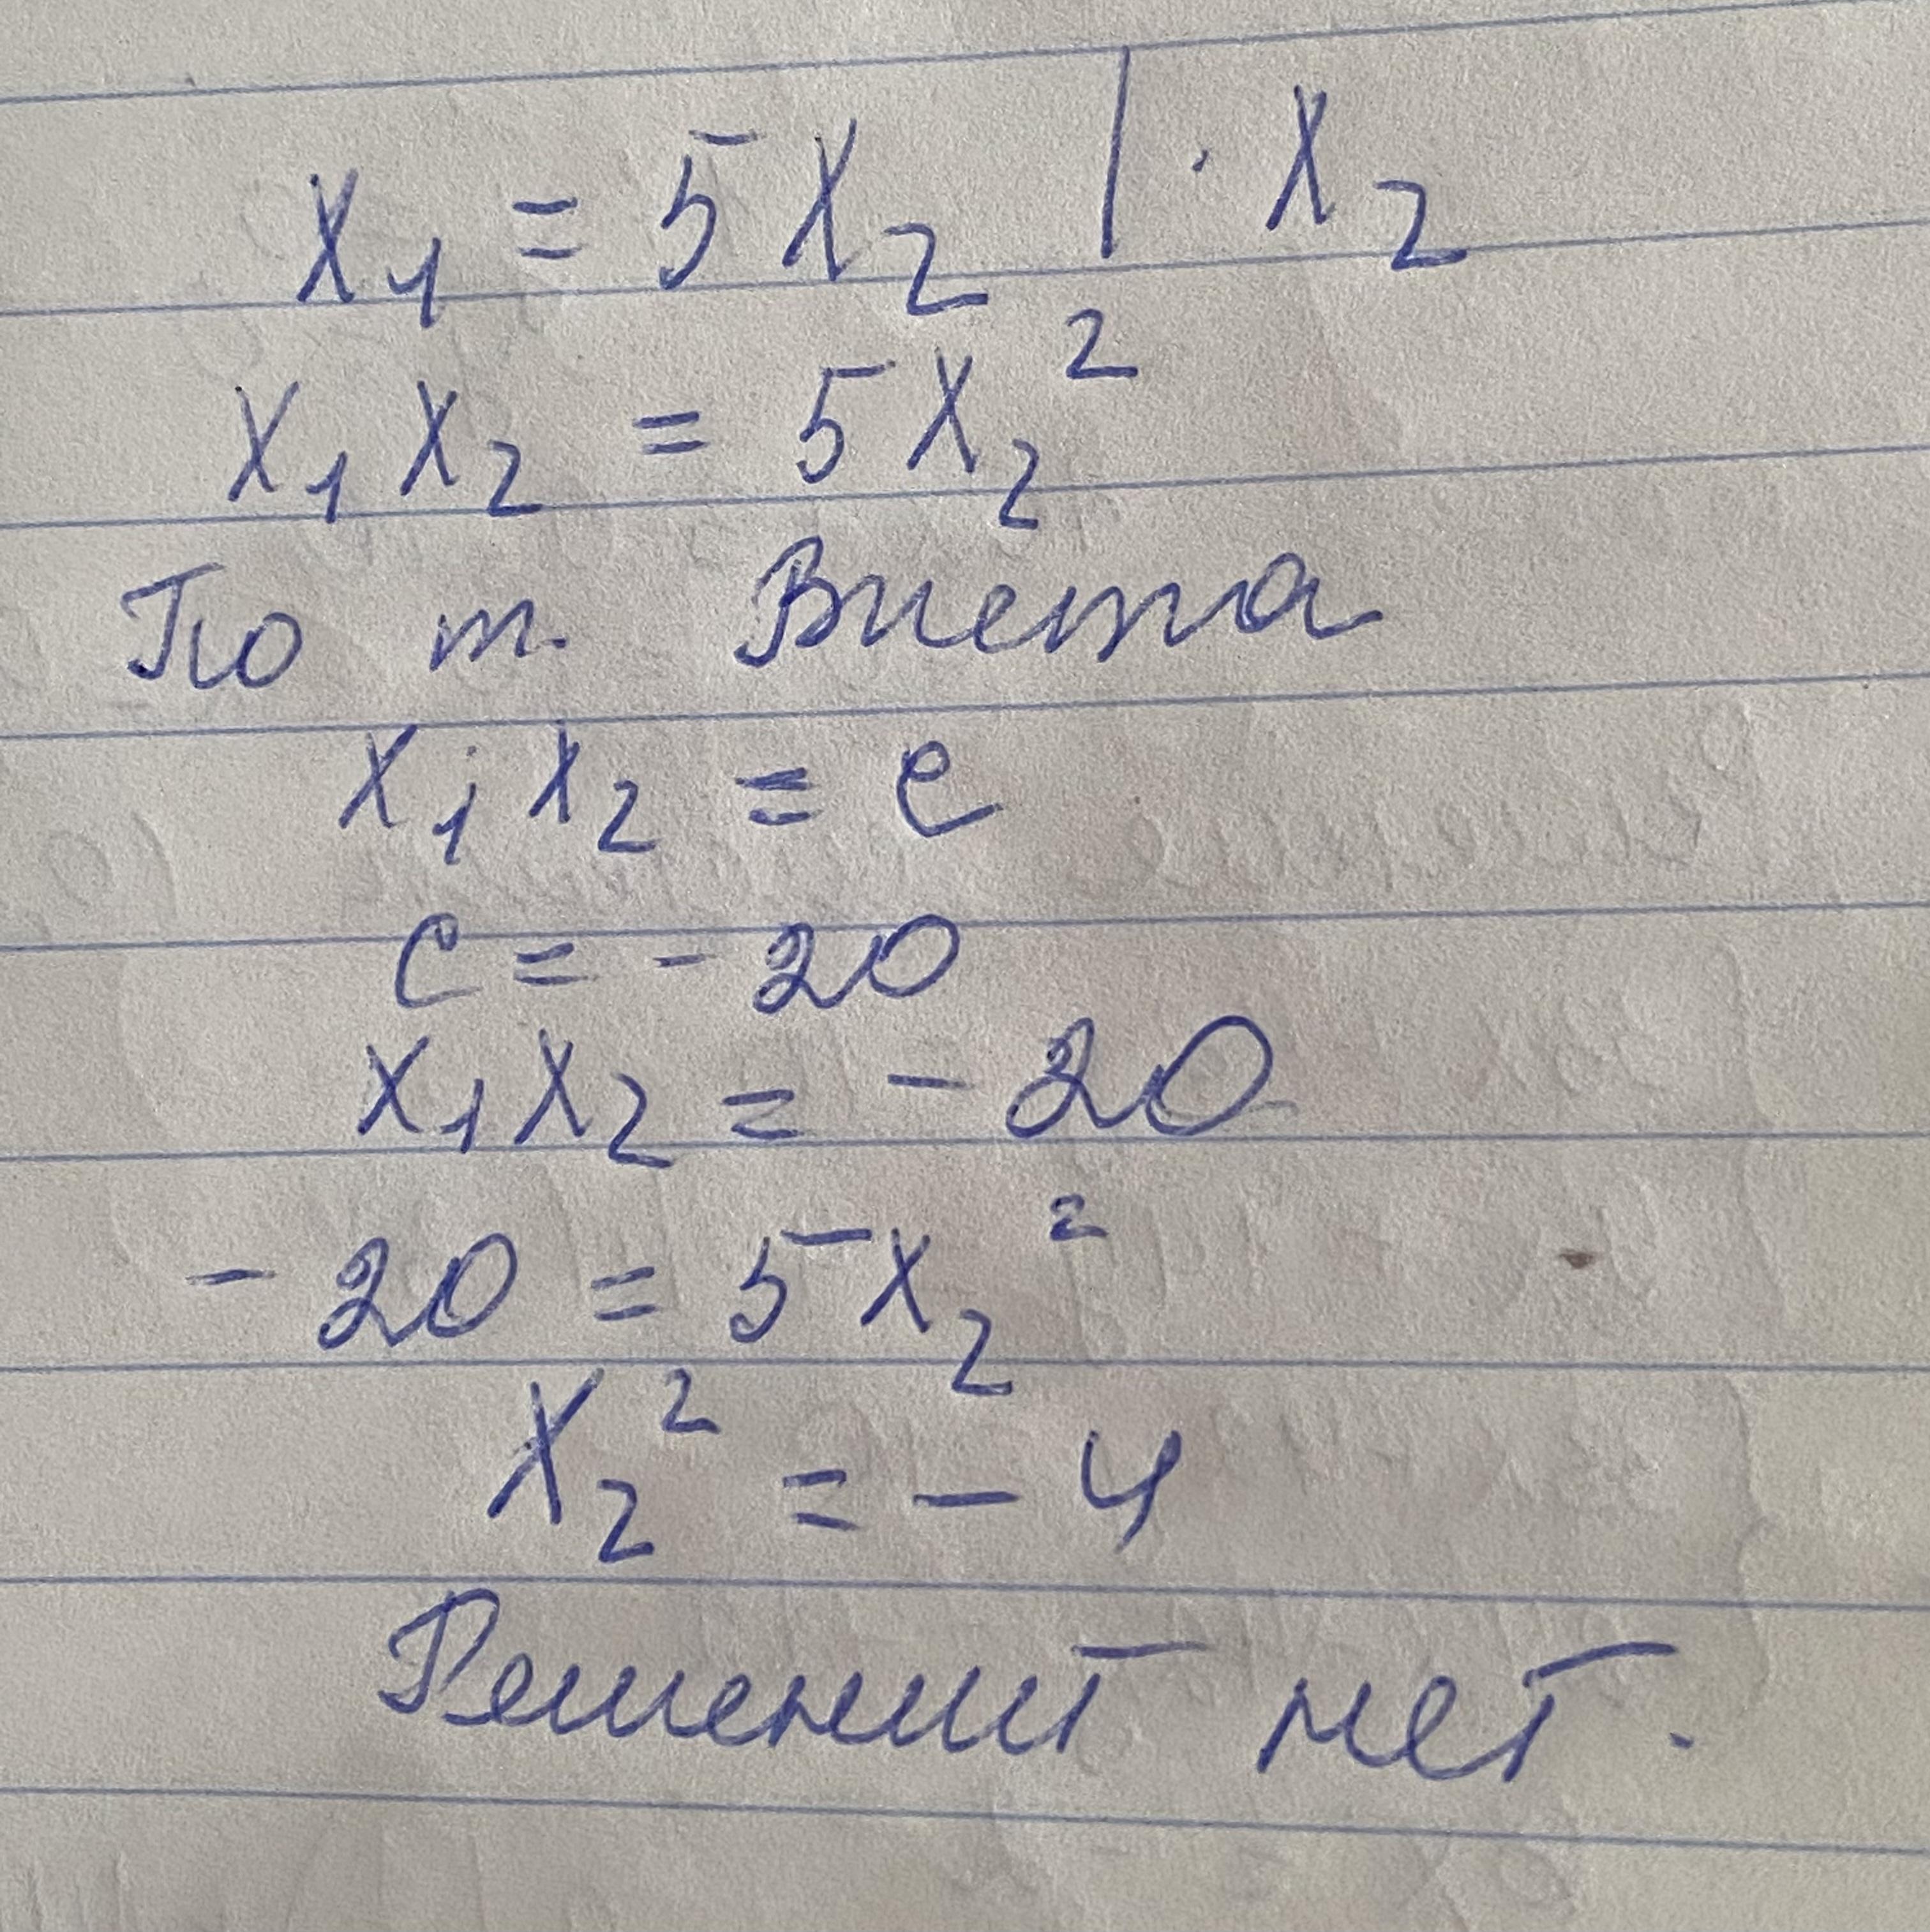 x₁ = 5x₂ | · x₂
x₁x₂ = 5x₂²
По т. Виета
x₁x₂ = c
c = - 20
x₁x₂ = - 20
- 20 = 5x₂²
x₂² = - 4
Решений нет.